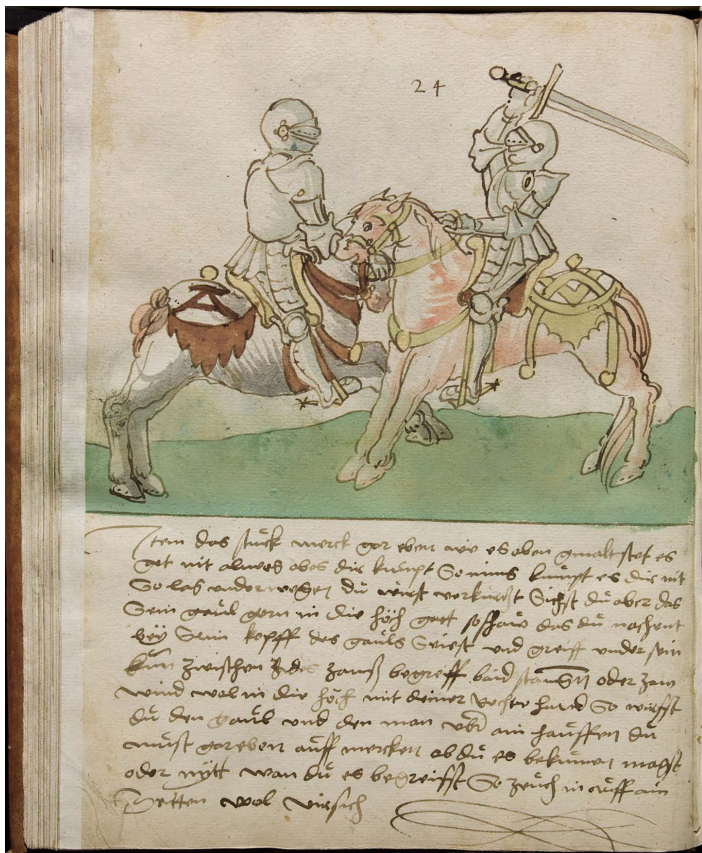 24
Item das stuck merck gar eben wie es oben gmalt stet es
get nit alweg obes dir kumpt So nims kumpt es dir nit
So las underwegen du wirst verkurtzt Sichst du aber das
Sein gaul gern in die höch gat so schaw das du nachent
bey Seim kopff des gauls Seiest und greiff under sein
kun zwischen des zams begreiff baid stangen oder zam
wind wol in die höch mit deiner rechten hand So wirffst
du den gaul und den man uber ain hauffen du
must gar eben auff mercken ob du es bekumen magst
oder nytt wan du es begreiffst So zeuch in auff ain
Seitten wol ubersich